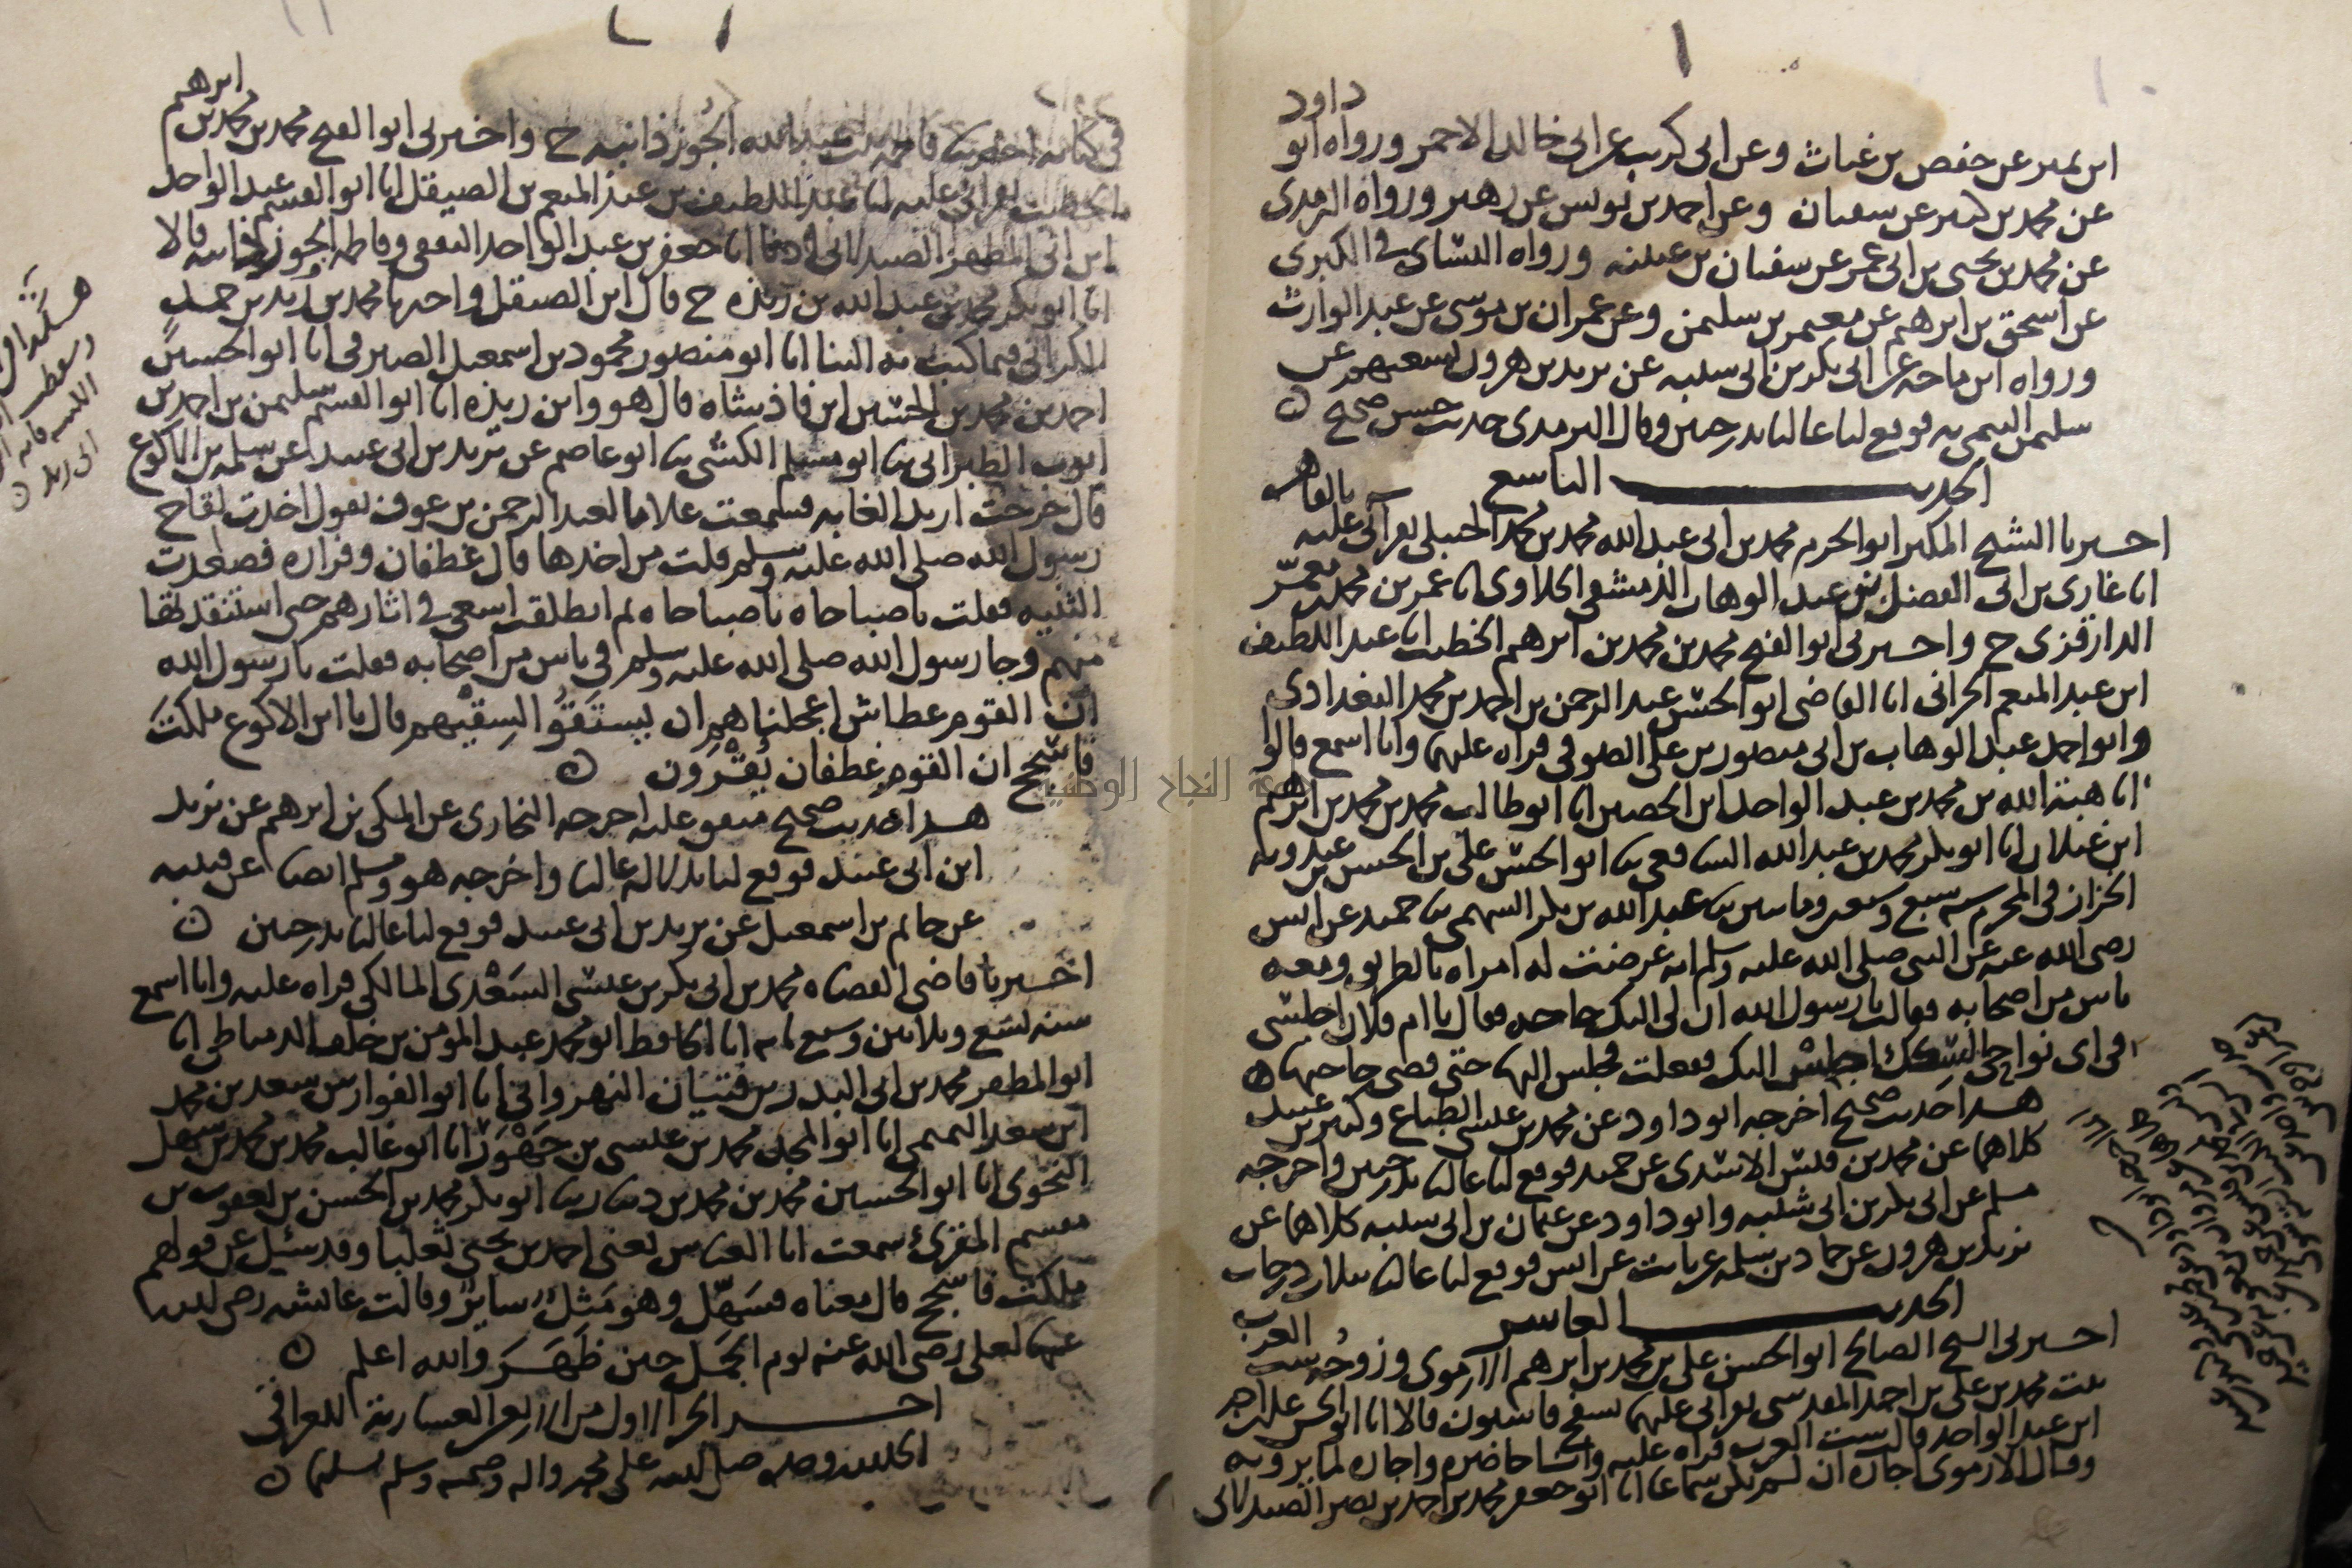 داود
ابن نمير عن حفص بن غياث وعن ابى كريب عن ابى خالد الاحمر ورواه ابو
عن محمد بن كثير عن سفيان وعن احمد بن يونس عن زهير ورواه الترمدى
عن محمد بن يحيى بن ابى عمر عن سفيان بن عيينه ورواه النساى فى الكبرى
عن اسحق بن ابرهيم عن معتمر بن سليمن وعن عمران بن موسى عن عبد الوارث
ورواه ابن ماجه عن ابى بكر بن ابى شيبه عن يزيد بن هرون تسعتهم عن
سليمن التيمى به فوقع لنا عاليا بدرجتين وقال الترمدى حديث حسن صحيح
الحديث التاسع
بالقاهره
اخبرنا الشيخ المكثر ابو الحرم محمد بن ابى عبد الله محمد بن محمد الحنبلى بقرآتى عليه
انا غازى بن ابى الفضل بن عبد الوهاب الدمشقى الحلاوى انا عمر بن محمد بن معمر
الدارقزى ح واخبرنى ابو الفتح محمد بن محمد بن ابرهيم الخطيب انا عبد اللطيف
ابن عبد المنعم الحرانى انا القاضى ابو الحسن عبد الرحمن بن احمد بن محمد البغدادى
وابو احمد عبد الوهاب بن ابى منصور بن على الصوفى قراه عليهما وانا اسمع قالوا
انا هبة الله بن محمد بن عبد الواحد ابن الحصين انا ابو طالب محمد بن محمد بن ابرهيم
ابن غيلان انا ابو بكر محمد بن عبد الله الشافعى ثنا ابو الحسن على بن الحسن بن عبدويه
الخزاز فى المحرم سنه سبع وسبعين ومايتين ثنا عبد الله بن بكر السهمى ثنا حميد عن انس
رضى الله عنه عن النبى صلى الله عليه وسلم انه عرضت له امراه بالطريق ومعه
ناس من اصحابه فقالت يا رسول الله ان لى اليك حاجه فقال يا ام فلان اجلسى
فى اى نواحى السكك اجلس اليك ففعلت فجلس اليها حتى قضى حاجتها
هدا حديث صحيح اخرجه ابو داود عن محمد بن عيسى الطباع وكثير بن عبيد
كلاهما عن مروان بن معاويه عن حميد فوقع لنا عاليا بدرجتين واخرجه
مسلم عن ابى بكر بن ابى شيبه وابو داود عن عثمان بن ابى شيبه كلاهما عن
يزيد بن هرون عن حماد بن سلمه عن ثابت عن انس فوقع لنا عاليا بثلاث درجات
الحديث العاشر
اخبرنى الشيخ الصالح ابو الحسن على بن محمد بن ابرهيم الارموى وزوجته ست العرب
بنت محمد بن على بن احمد المقدسى بقرآتى عليهما بسفح قاسيون قالا انا ابو الحسن على بن احمد
ابن عبد الواحد قالت ست العرب قراه عليه وانا حاضره واجازه لما يرويه
وقال الارموى اجازه ان لم يكن سماعا انا ابو جعفر محمد بن احمد بن نصر الصيدلانى
ابرهيم
فى كتابه اخبرتنا فاطمه بنت عبد الله الجوزذانيه ح واخبرنى ابو الفتح محمد بن محمد بن
الخطيب بقرآتى عليه انا عبد اللطيف بن عبد المنعم بن الصيقل انا ابو القسم عبد الواحد
ابن ابى المطهر الصيدلانى اذنا انا جعفر بن عبد الواحد الثقفى وفاطمه الجوزذانيه قالا
انا ابو بكر محمد بن عبد الله بن ريذه ح قال ابن الصيقل واخبرنا محمد بن زيد بن حمد
الكرانى فيما كتب به الينا انا ابو منصور محمود بن اسمعيل الصيرفى انا ابو الحسين
احمد بن محمد بن الحسين ابن فاذشاه قال هو وابن ريذه انا ابو القسم سليمن بن احمد بن
ايوب الطبرانى ثنا ابو مسلم الكشى ثنا ابو عاصم عن يزيد بن ابى عبيد عن سلمه بن الاكوع
قال خرجت اريد الغابه فسمعت غلاما لعبد الرحمن بن عوف يقول اخذت لقاح
رسول الله صلى الله عليه وسلم قلت من اخدها قال غطفان وفزاره فصعدت
الثنيه فقلت يا صباحاه يا صباحاه ثم انطلقت اسعى فى اثارهم حتى استنقدتها
منهم وجا رسول الله صلى الله عليه وسلم فى ناس من اصحابه فقلت يا رسول الله
ان القوم عطاش اعجلناهم ان يستقوا لسقيهم قال يا ابن الاكوع ملكت
فاسجح ان القوم غطفان يقرون
هدا حديث صحيح متفق عليه اخرجه البخارى عن المكى بن ابرهيم عن يزيد
ابن ابى عبيد فوقع لنا بدلا له عاليا واخرجه هو ومسلم ايضا عن قتيبه
عن حاتم بن اسمعيل عن يزيد بن ابى عبيد فوقع لنا عاليا بدرجتين
اخبرنا قاضى القضاه محمد بن ابى بكر بن عيسى السعدى المالكى قراه عليه وانا اسمع
سنه تسع وثلاثين وسبع مايه انا الحافظ ابو محمد عبد المومن بن خلف الدمياطى انا
ابو المظفر محمد بن ابى البدر بن فتيان النهروانى انا ابو الفوارس سعد بن محمد
ابن سعد التميمى انا ابو المجد محمد بن عيسى بن جهور انا ابو غالب محمد بن محمد بن سهل
النحوى انا ابو الحسين محمد بن محمد بن دينار ثنا ابو بكر محمد بن الحسن بن يعقوب بن
مقسم المقرئ سمعت ابا العباس يعنى احمد بن يحيى ثعلبا وقد سئل عن قولهم
ملكت فاسجح قال معناه فسهل وهو مثل ساير وقالت عايشه رضى الله
عنها لعلى رضى الله عنه يوم الجمل حين ظهر والله اعلم
اخر الجزا الاول من الاربعين العشاريه للعراقى
الحمد لله وحده صلى الله على محمد واله وصحبه وسلم تسليما
النجاح الوطنية